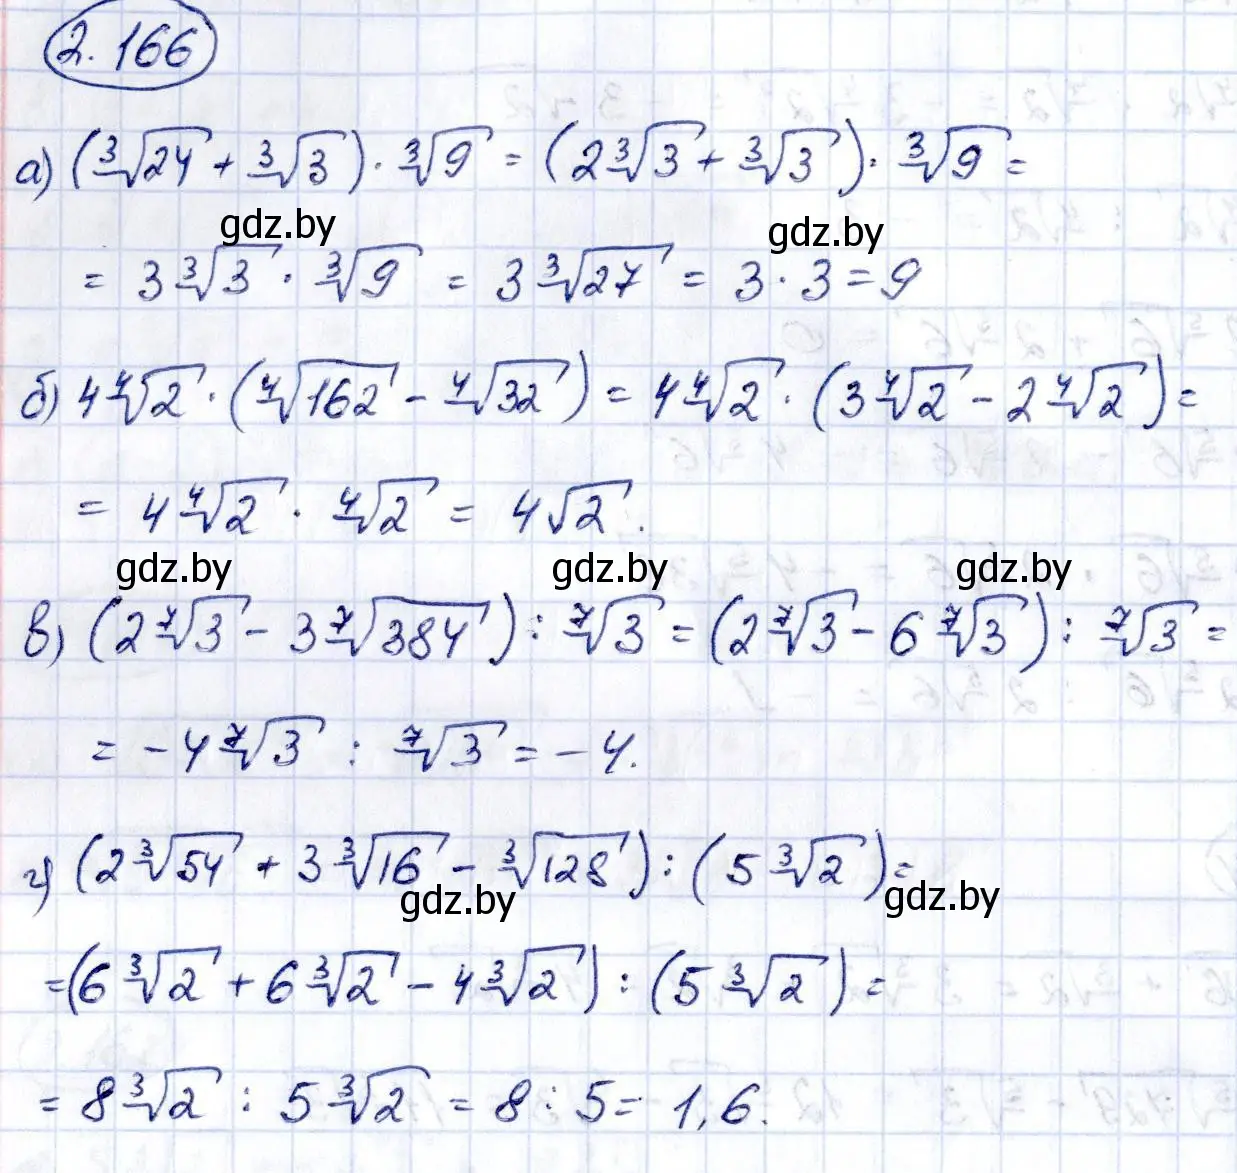 2.166
а) (∛24 + ∛3) · ∛9 = (2∛3 + ∛3) · ∛9 =
gdz.by gdz.by
= 3∛3 · ∛9 = 3∛27 = 3 · 3 = 9
б) 4∜2 · (∜162 - ∜32) = 4∜2 · (3∜2 - 2∜2) =
= 4∜2 · ∜2 = 4√2.
gdz.by gdz.by gdz.by
в) (2⁷√3 - 3⁷√384) : ⁷√3 = (2⁷√3 - 6⁷√3) : ⁷√3 =
= -4⁷√3 : ⁷√3 = -4.
г) (2∛54 + 3∛16 - ∛128) : (5∛2) =
gdz.by gdz.by
= (6∛2 + 6∛2 - 4∛2) : (5∛2) =
= 8∛2 : 5∛2 = 8 : 5 = 1,6.